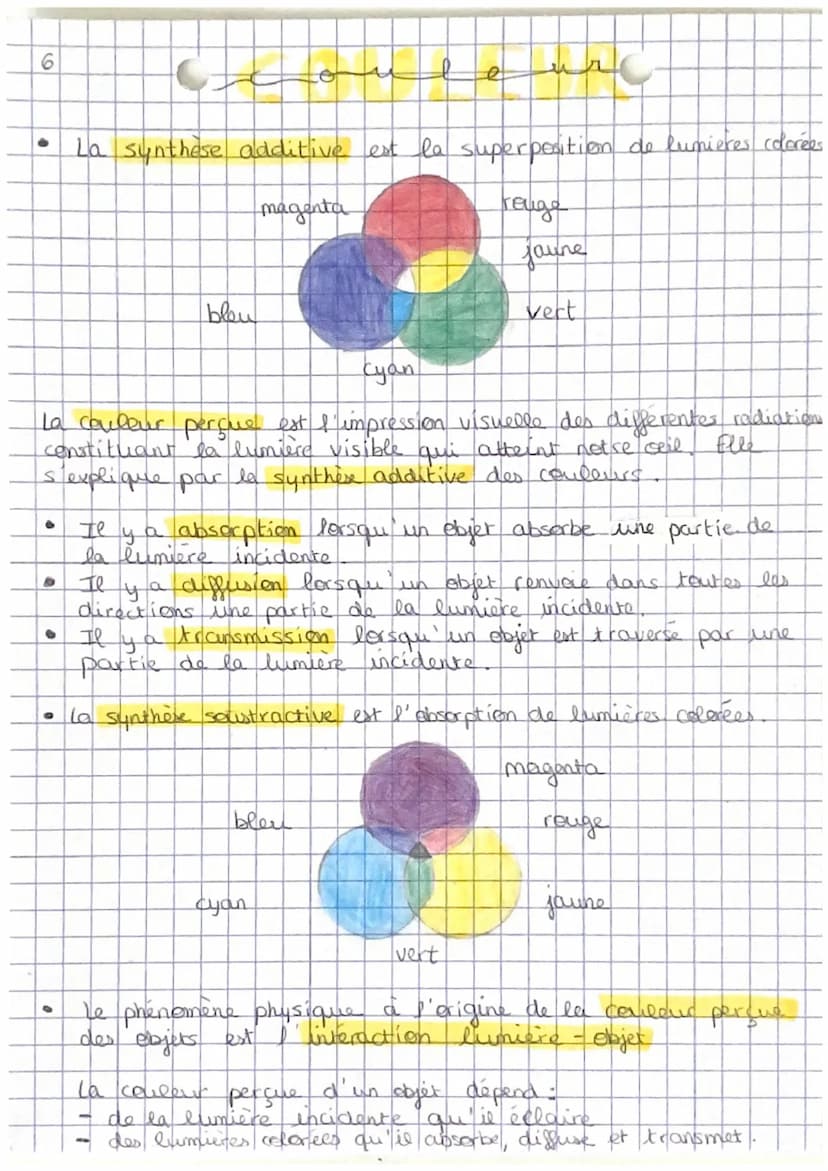 6
COULEUR
couleur
• La synthèse additive est la superposition de lumières colorées
magenta
rouge
jaune
bleu
vert
cyan
La couleur perçue est l'impression visuelle des différentes radiation
constituant la lumière visible qui atteint notre œil. Elle
s'explique par la synthèse additive des couleurs.
• Il y a absorption lorsqu'un objet absorbe une partie de
la lumière incidente.
• Il y a diffusion lorsqu'un objet renvoie dans toutes les
directions une partie de la lumière incidente.
• Il y a transmission lorsqu'un objet est traversé par une
partie de la lumière incidente.
• La synthèse soustractive est l'absorption de lumières colorées.
magenta
bleu
rouge
cyan
jaune
vert
• Le phénomène physique à l'origine de la couleur perçue
des objets est l'interaction lumière - objet
La couleur perçue d'un objet dépend :
- de la lumière incidente qu'il éclaire
- des lumières colorées qu'il absorbe, diffuse et transmet.